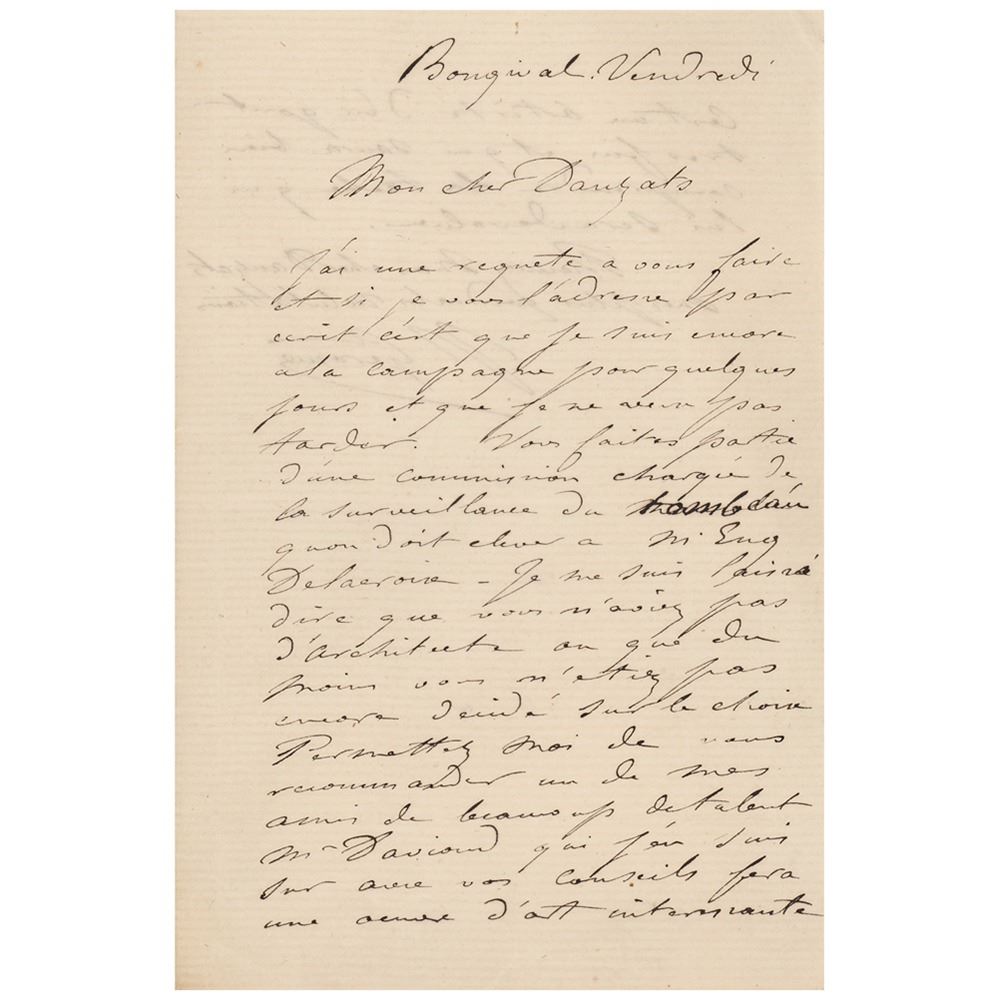 Bougival. Vendredi
Mon cher Dauzats
J'ai une requete a vous faire
et si je vous l'adresse par
ecrit c'est que je suis encore
a la campagne pour quelques
jours et que je ne veux pas
tarder. Vous faites partie
d'une commission chargée de
la surveillance du tombeau
quon doit elever a Mr Eug
Delacroix - Je me suis laissé
dire que vous n'aviez pas
d'architecte ou que du
moins vous n'etiez pas
encore decidé sur le choix
Permettez moi de vous
recommander un de mes
amis de beaucoup de talent
Mr Davioud qui j'en suis
sur avec vos conseils fera
une oeuvre d'art interessante